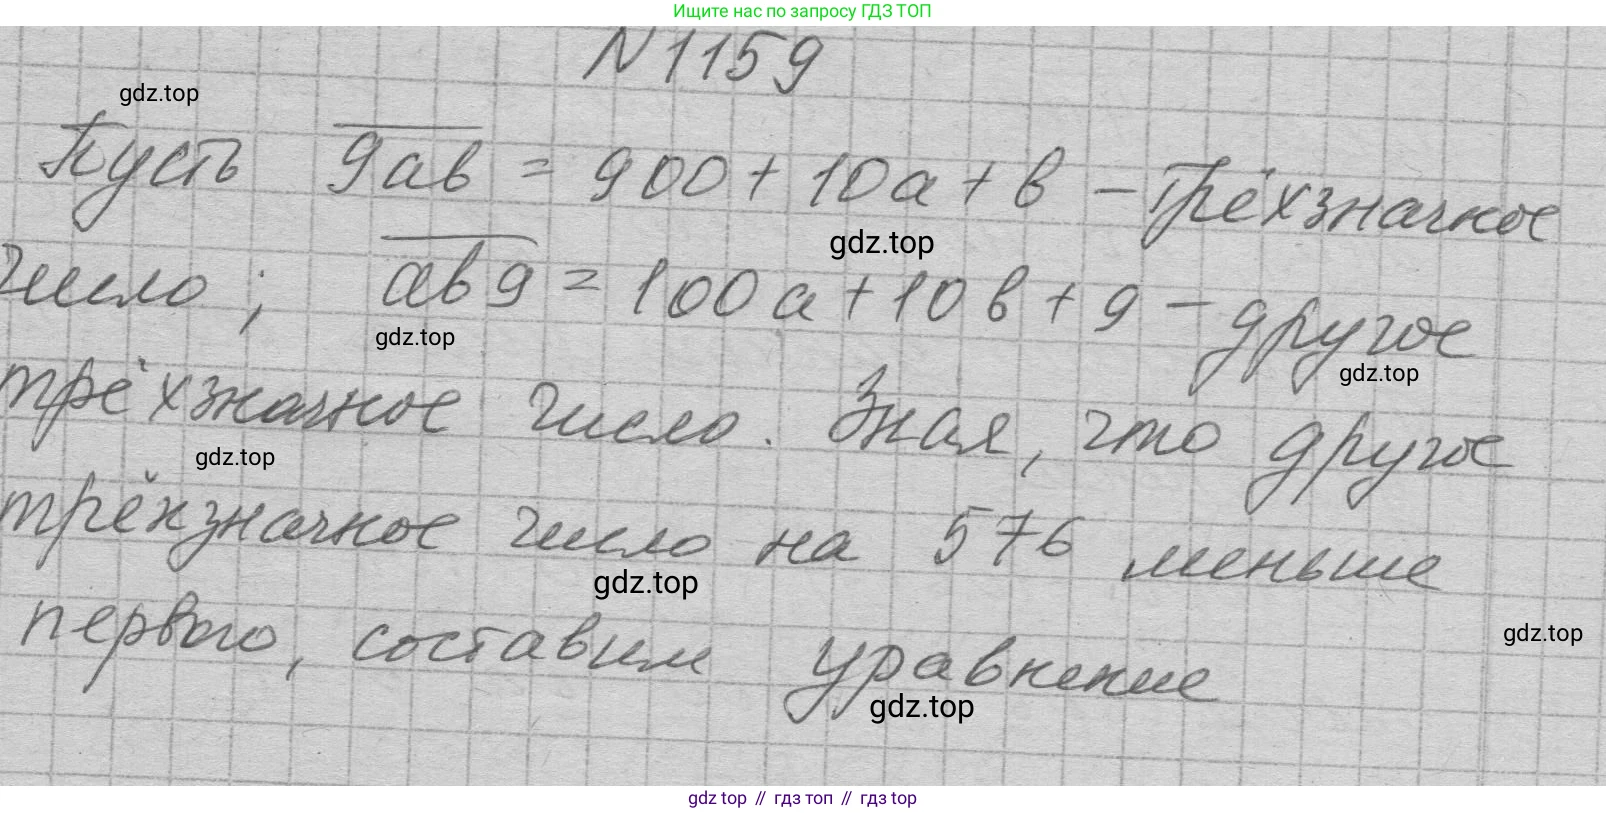 Ищите нас по запросу ГДЗ ТОП
N1159
gdz.top
Пусть 9ав = 900 + 10а + в – трёхзначное
gdz.top
число; ав9 = 100а + 10в + 9 – другое
gdz.top
gdz.top
трёхзначное число. Зная, что другое
gdz.top
трёхзначное число на 576 меньше
gdz.top
первого, составим уравнение
gdz.top
gdz.top
gdz top // гдз топ // гдз top